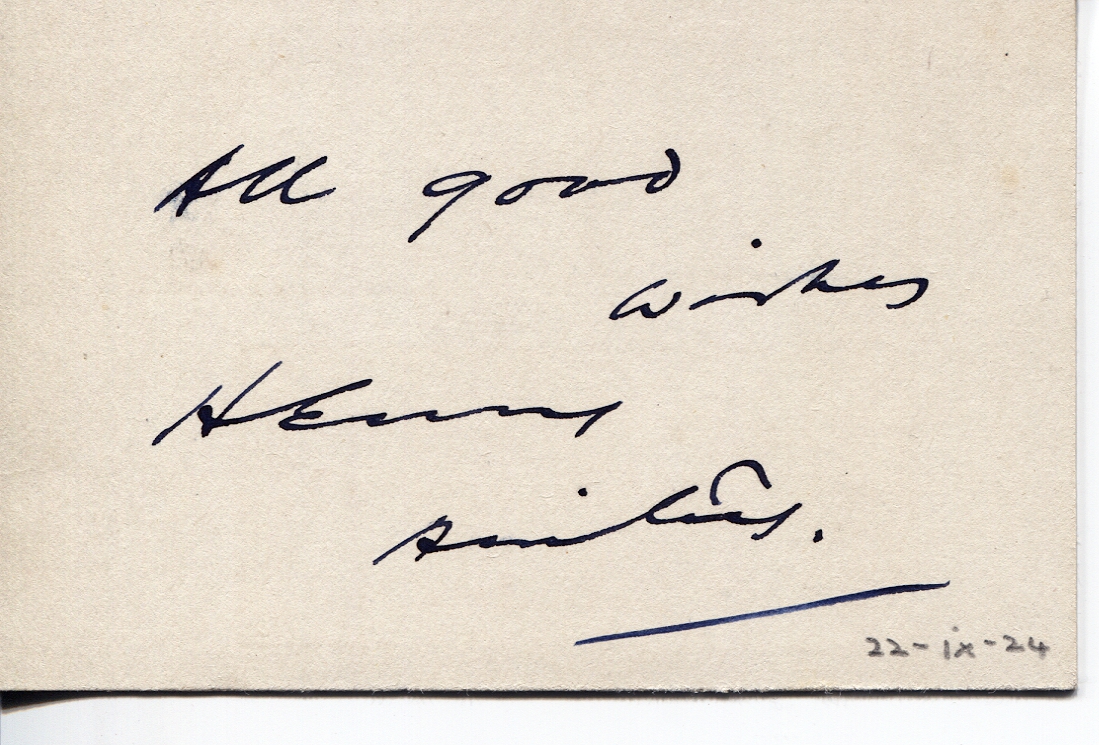 All good
wishes
Henry
Ainley.
22-ix-24